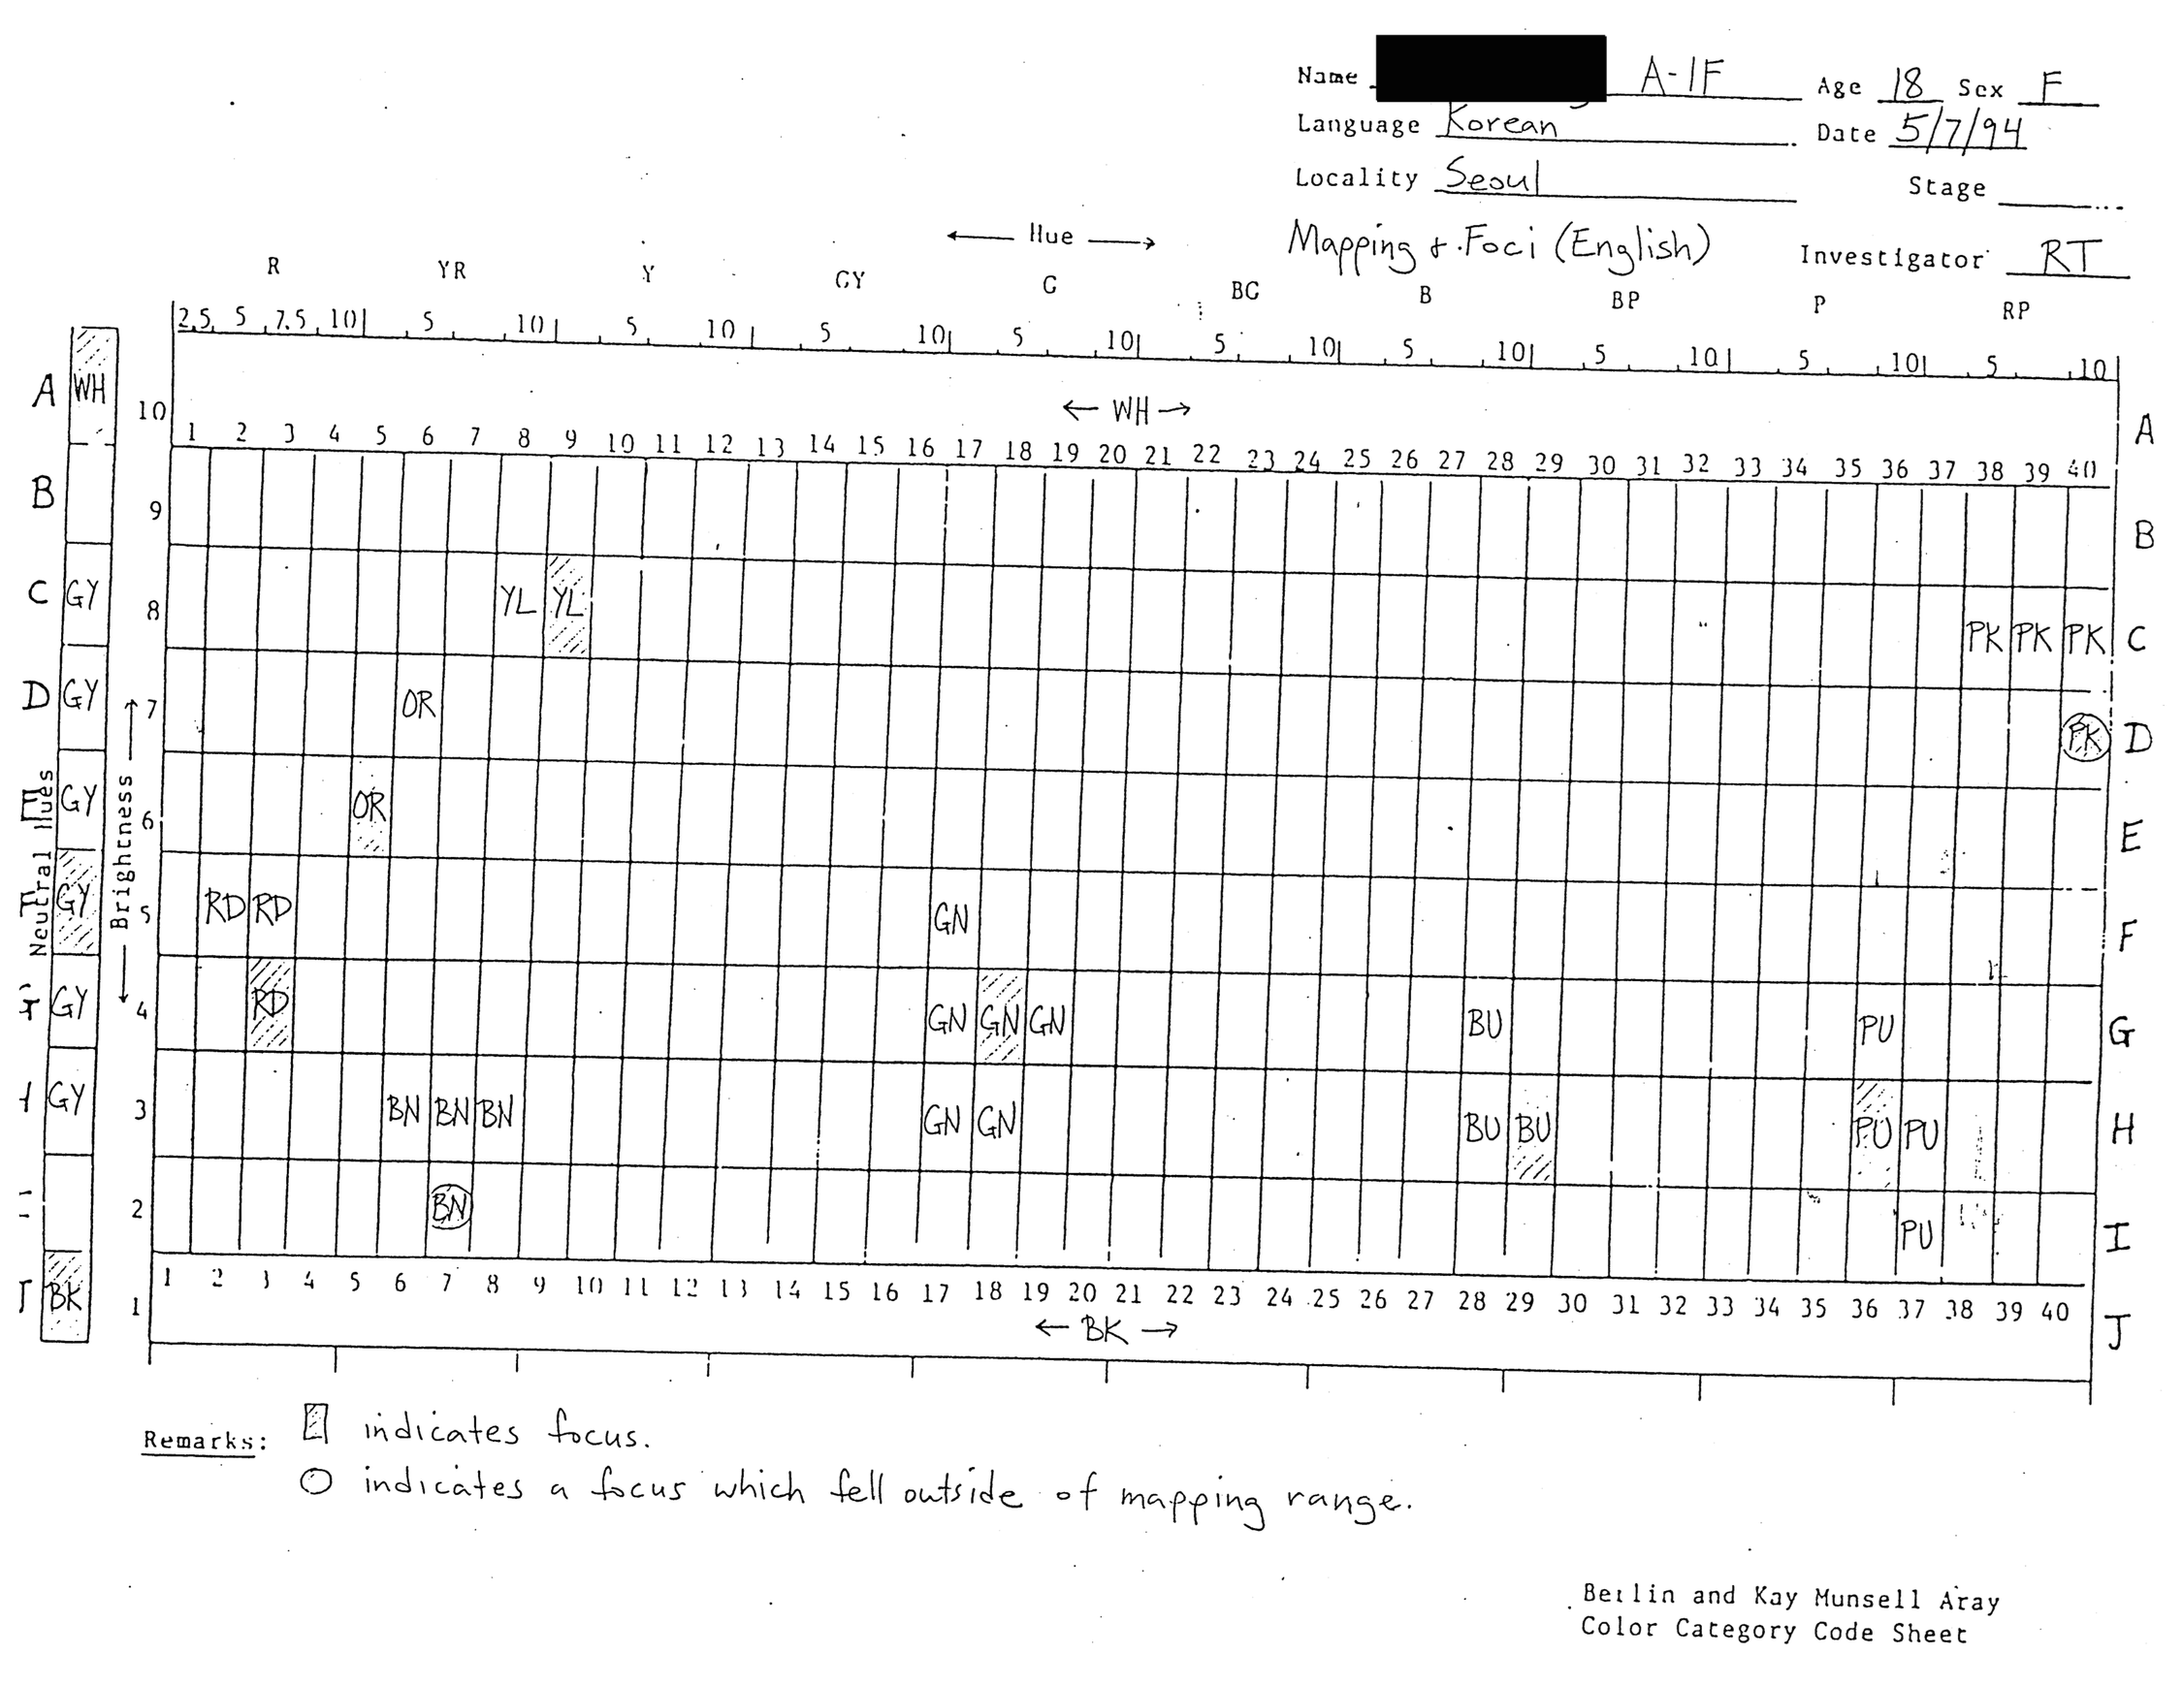 Name A-1F Age 18 Sex F
Language Korean Date 5/7/94
Locality Seoul Stage
Mapping & Foci (English) Investigator RT
← Hue →
R YR Y GY G BG B BP P RP
2.5 5 7.5 10 5 10 5 10 5 10 5 10 5 10 5 10 5 10 5 10 5 10
A WH 10 ← WH → A
1 2 3 4 5 6 7 8 9 10 11 12 13 14 15 16 17 18 19 20 21 22 23 24 25 26 27 28 29 30 31 32 33 34 35 36 37 38 39 40
B 9 B
C GY 8 YL YL PK PK PK C
D GY 7 OR PK D
E GY 6 OR E
F GY 5 RD RD GN F
G GY 4 RD GN GN GN BU PU G
GY 3 BN BN BN GN GN BU BU PU PU H
2 BN PU I
Neutral Hues
← Brightness →
1 2 3 4 5 6 7 8 9 10 11 12 13 14 15 16 17 18 19 20 21 22 23 24 25 26 27 28 29 30 31 32 33 34 35 36 37 38 39 40
BK 1 ← BK → J
Remarks: indicates focus.
indicates a focus which fell outside of mapping range.
Berlin and Kay Munsell Aray
Color Category Code Sheet